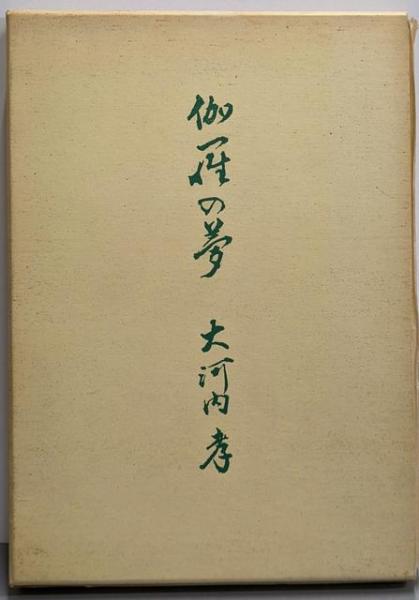 伽羅の夢
大河内孝